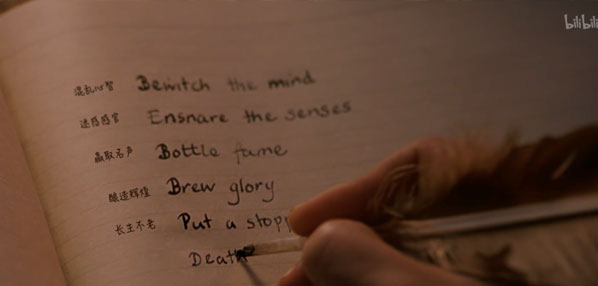 bilibili
混乱心智 Bewitch the mind
迷惑感官 Ensnare the senses
赢取名声 Bottle fame
酿造辉煌 Brew glory
长生不老 Put a stopp
Death